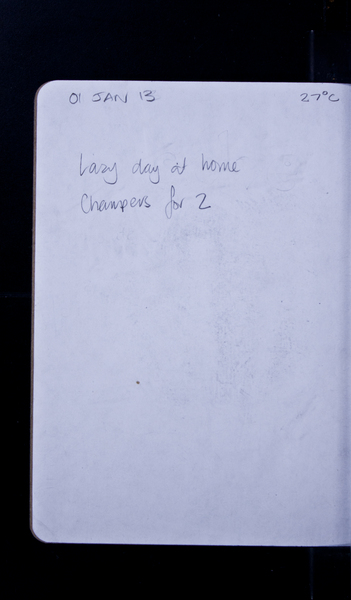 01 JAN 13 27°C
Lazy day at home
Champers for 2